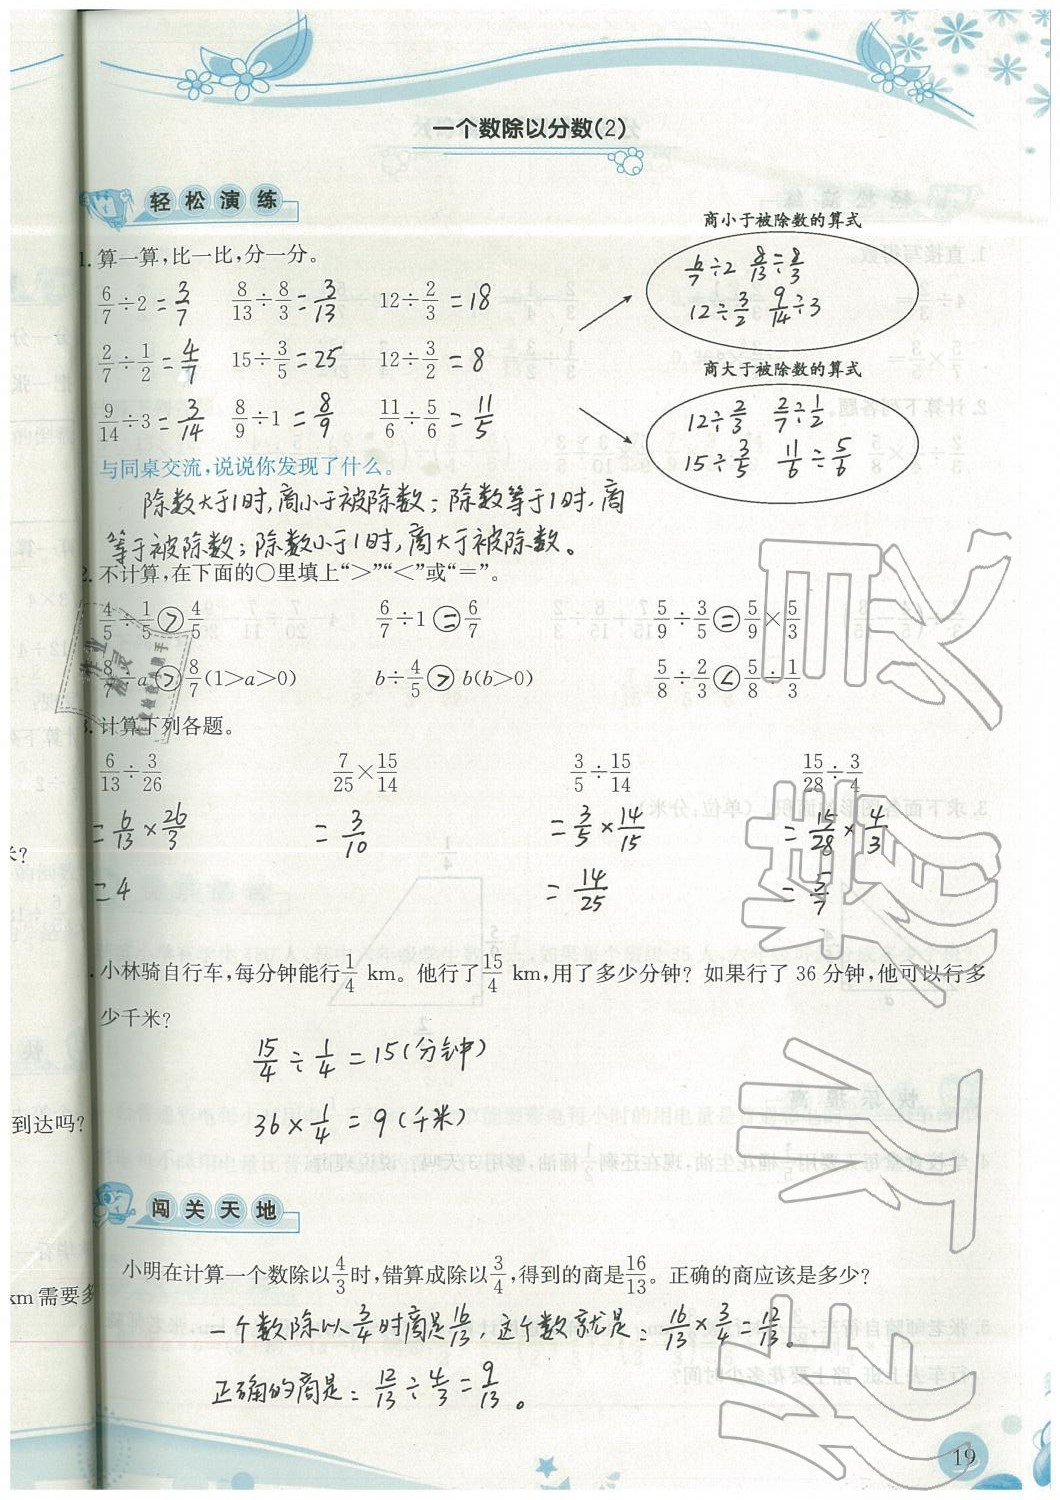 一个数除以分数(2)
轻松演练
1. 算一算,比一比,分一分。
6/7÷2=3/7 8/13÷8/3=3/13 12÷2/3=18
2/7÷1/2=4/7 15÷3/5=25 12÷3/2=8
9/14÷3=3/14 8/9÷1=8/9 11/6÷5/6=11/5
商小于被除数的算式
6/7÷2 8/13÷8/3
12÷3/2 9/14÷3
商大于被除数的算式
12÷2/3 2/7÷1/2
15÷3/5 11/6÷5/6
与同桌交流,说说你发现了什么。
除数大于1时,商小于被除数;除数等于1时,商
等于被除数;除数小于1时,商大于被除数。
2. 不计算,在下面的○里填上“>”“<”或“=”。
4/5÷1/5>4/5 6/7÷1=6/7 5/9÷3/5=5/9×5/3
8/7÷a>8/7(1>a>0) b÷4/5>b(b>0) 5/8÷2/3<5/8÷1/3
3. 计算下列各题。
6/13÷3/26 7/25×15/14 3/5÷15/14 15/28÷3/4
=6/13×26/3 =3/10 =3/5×14/15 =15/28×4/3
=4 =14/25 =5/7
小林骑自行车,每分钟能行1/4 km。他行了15/4 km,用了多少分钟?如果行了36分钟,他可以行多
少千米?
15/4÷1/4=15(分钟)
36×1/4=9(千米)
到达吗?
闯关天地
小明在计算一个数除以4/3时,错算成除以3/4,得到的商是16/13。正确的商应该是多少?
km需要多
一个数除以3/4时商是16/13,这个数就是:16/13×3/4=12/13。
正确的商是:12/13÷4/3=9/13。
19